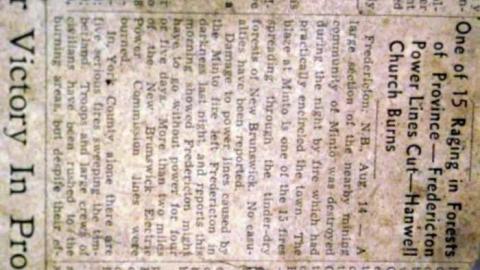 One of 15 Raging in Forests
of Province—Fredericton
Power Lines Cut—Hanwell
Church Burns
Fredericton, N.B., Aug. 14 — A
large section of the nearby mining
community of Minto was destroyed
during the night by fire which had
practically encircled the town. The
blaze at Minto is one of the 15 fires
spreading through the tinder-dry
forests of New Brunswick. No casu-
alties have been reported.
Damage to power lines caused by
the Minto fire left Fredericton in
darkness last night, and reports this
morning showed Fredericton might
have to go without power for four
or five days. More than two miles
of the New Brunswick Electric
Power Commission lines were
burned.
In York County alone there are
five serious fires sweeping the tim-
berlands. Troops and large crews of
civilians have been to
burning areas, but despite their ef-
r Victory In Pro